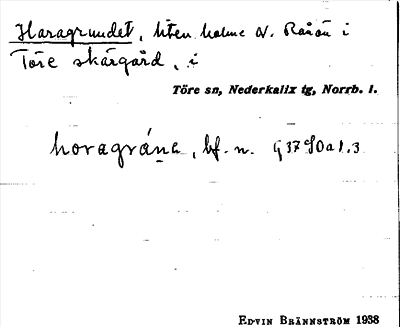 Haragrundet, liten holme N. Rånön i
Töre skärgård, i
Töre sn, Nederkalix tg, Norrb. l.
horagrána, bf. n. G 37
EDVIN BRÄNNSTRÖM 1938